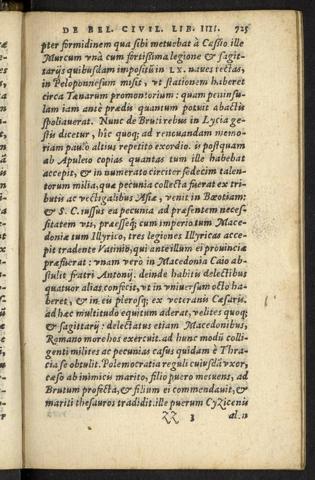 DE BEL. CIVIL. LIB. IIII. 725
pter formidinem qua sibi metuebat à Cassio ille
Murcum vnà cum fortissima legione & sagit-
tarijs quibusdam impositũ in LX. naues tectas,
in Peloponnesum misit, vt stationem haberet
circa Tænarum promontorium: quam peninsu-
lam iam antè prædis quantum potuit abactis
spoliauerat. Nunc de Bruti rebus in Lycia ge-
stis dicetur, hîc quoq; ad renouandam memo-
riam paulo altius repetito exordio. is postquam
ab Apuleio copias quantas tum ille habebat
accepit, & in numerato circiter sedecim talen-
torum milia, quæ pecunia collecta fuerat ex tri-
butis ac vectigalibus Asiæ, venit in Bœotiam:
& S.C. iussus ea pecunia ad præsentem neces-
sitatem vti, præesseq; cum imperio tum Mace-
doniæ tum Illyrico, tres legiones Illyricas acce-
pit tradente Vatinio, qui ante illum ei prouinciæ
præfuerat: vnam verò in Macedonia Caio ab-
stulit fratri Antonij. deinde habitis delectibus
quatuor alias confecit, vt in vniuersum octo ha-
beret, & in eis plerosq; ex veteranis Cæsaris.
ad hæc multitudo equitum aderat, velites quoq;
& sagittarij: delectatus etiam Macedonibus,
Romano more hos exercuit. ad hunc modũ colli-
genti milites ac pecunias casus quidam è Thra-
cia se obtulit. Polemocratia reguli cuiusdã vxor,
cæso ab inimicis marito, filio puero metuens, ad
Brutum profecta, & filium ei commendauit, &
mariti thesauros tradidit. ille puerum Cyzicenis
RR 3 al. is